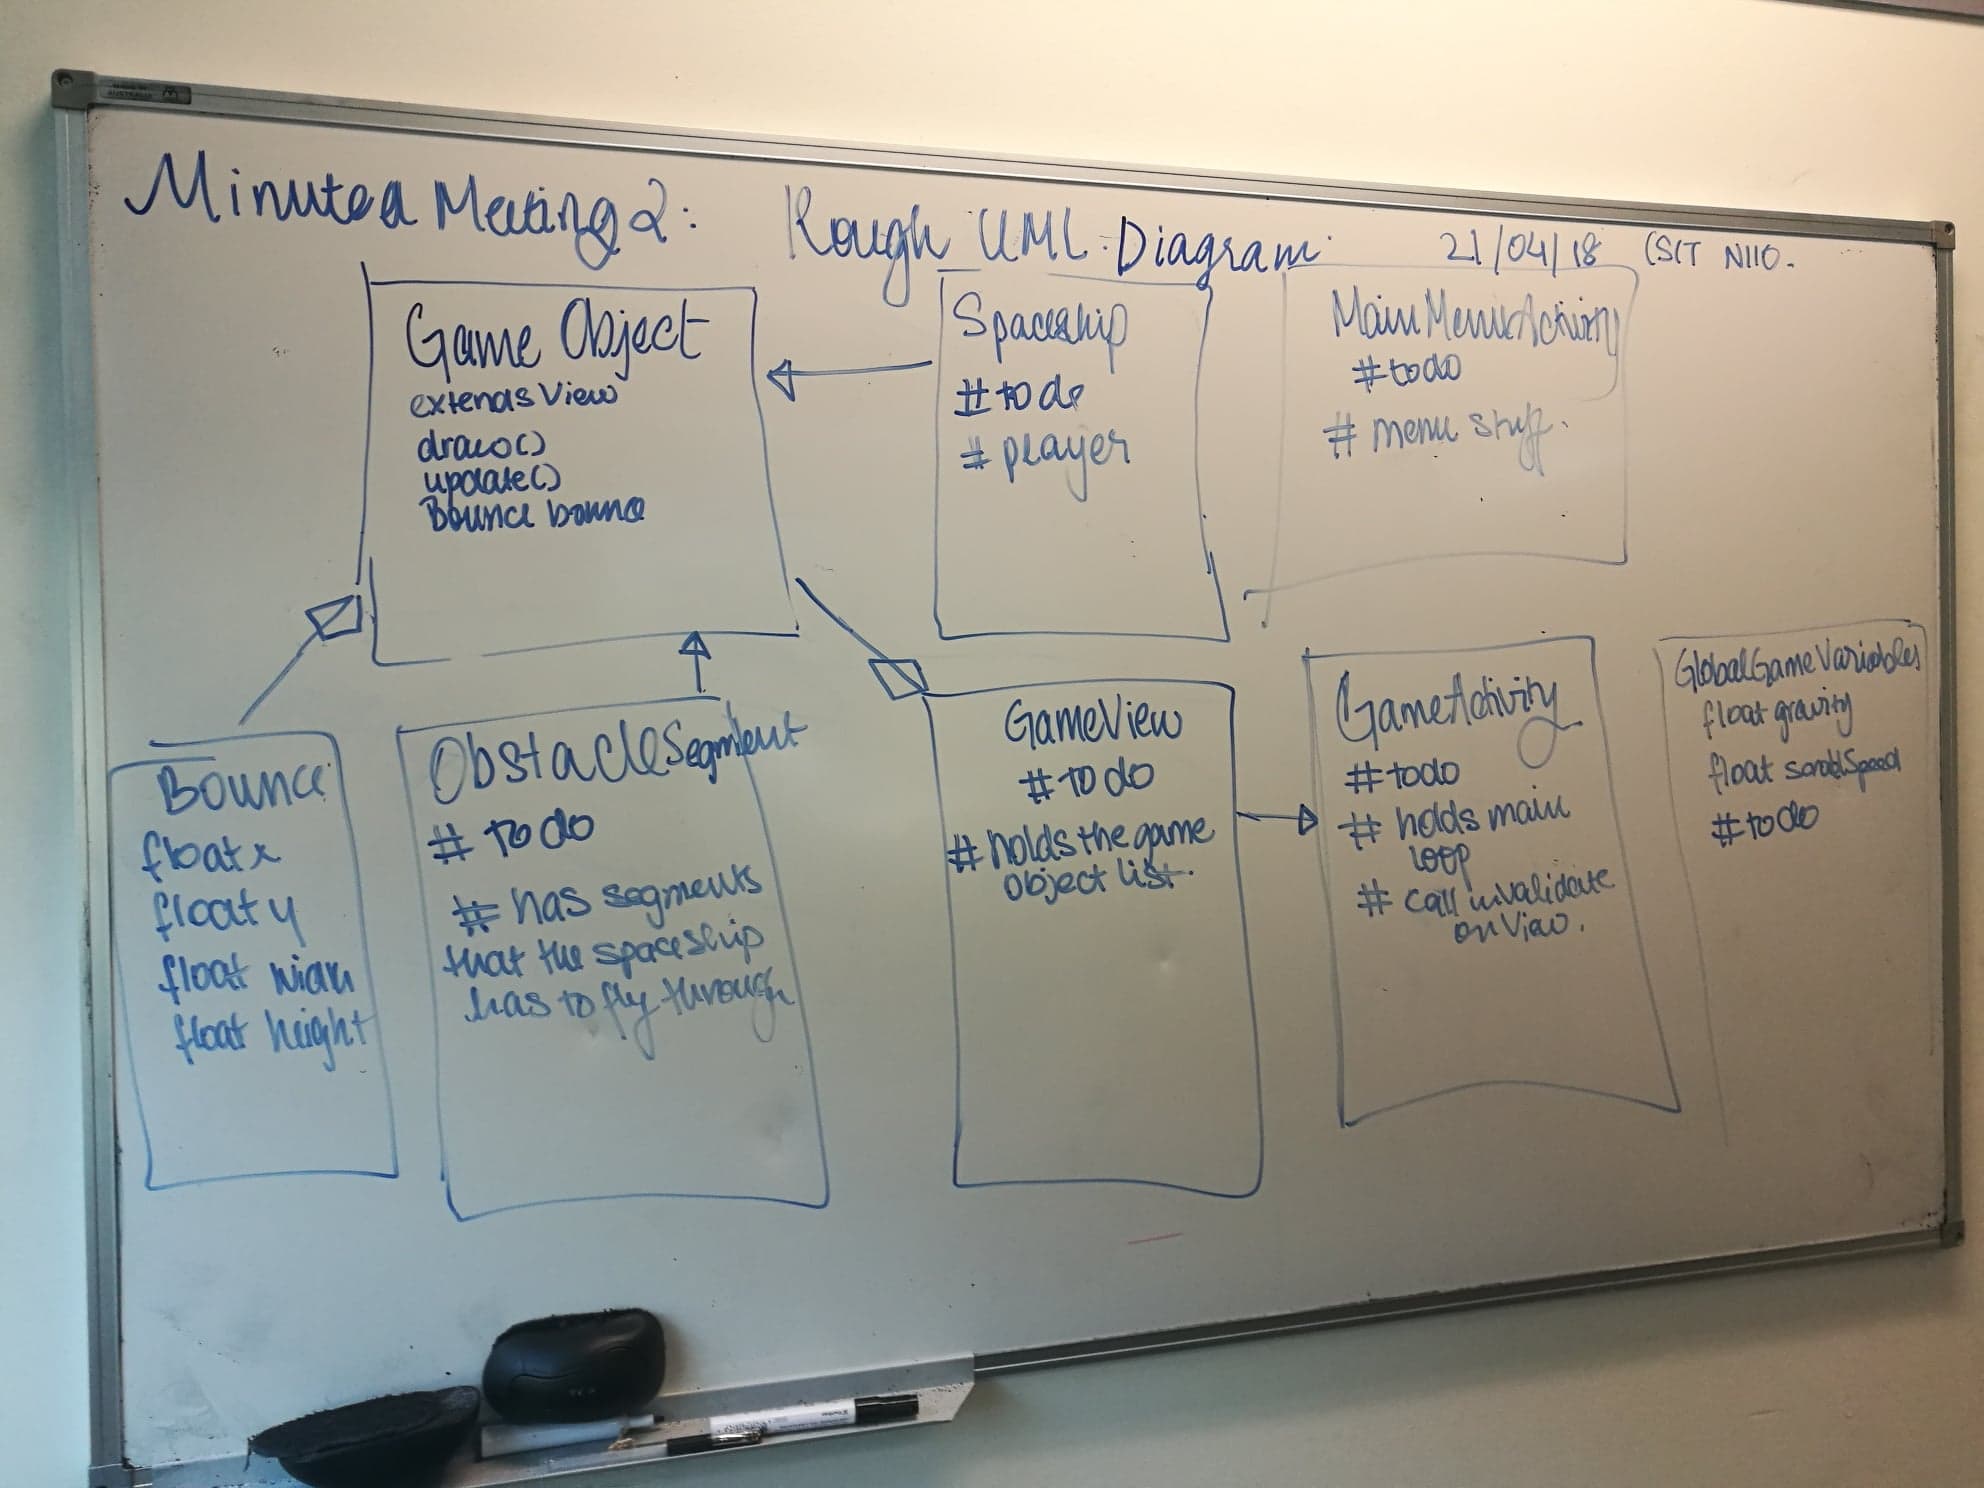 MADE IN AUSTRALIA
Minuted Meeting 2: Rough UML Diagram. 21/04/18 CSIT N110.
Game Object
extends View
draw()
update()
Bounce bounce
Spaceship
# to do
# player
MainMenuActivity
# todo
# menu stuff.
Bounce
float x
float y
float
float height
ObstacleSegment
# To do
# has segments
that the spaceship
has to fly through
GameView
# TO do
# holds the game
object list.
GameActivity
# todo
# holds main
loop
# call invalidate
on View.
GlobalGameVariables
float gravity
float scrollSpeed
# todo